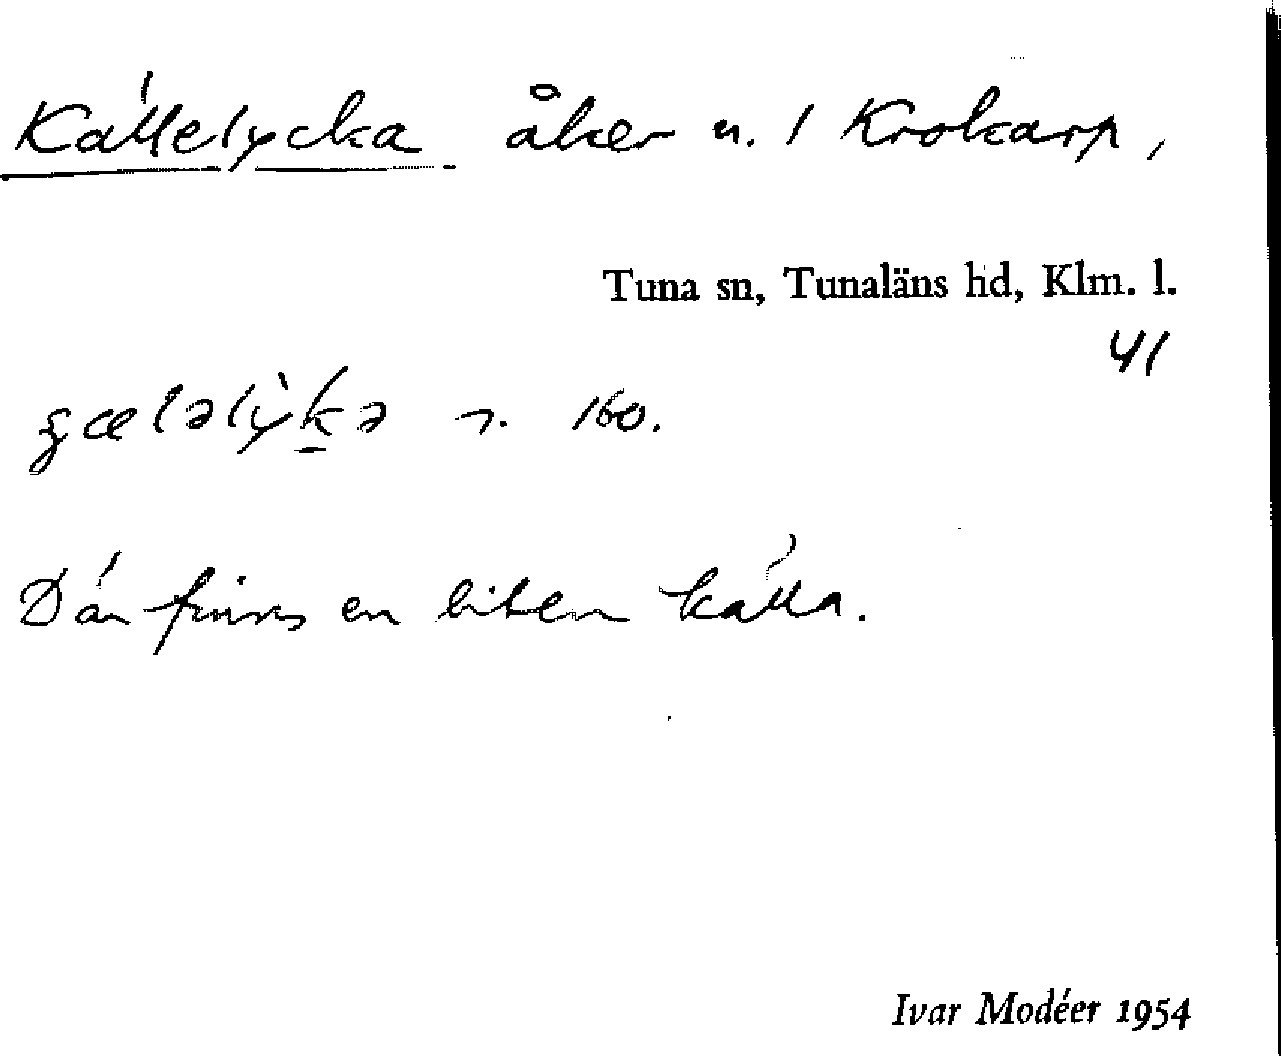 Källelycka åker u. / Krokarp,
Tuna sn, Tunaläns hd, Klm. l.
41
160.
Där finns en liten källa.
Ivar Modéer 1954